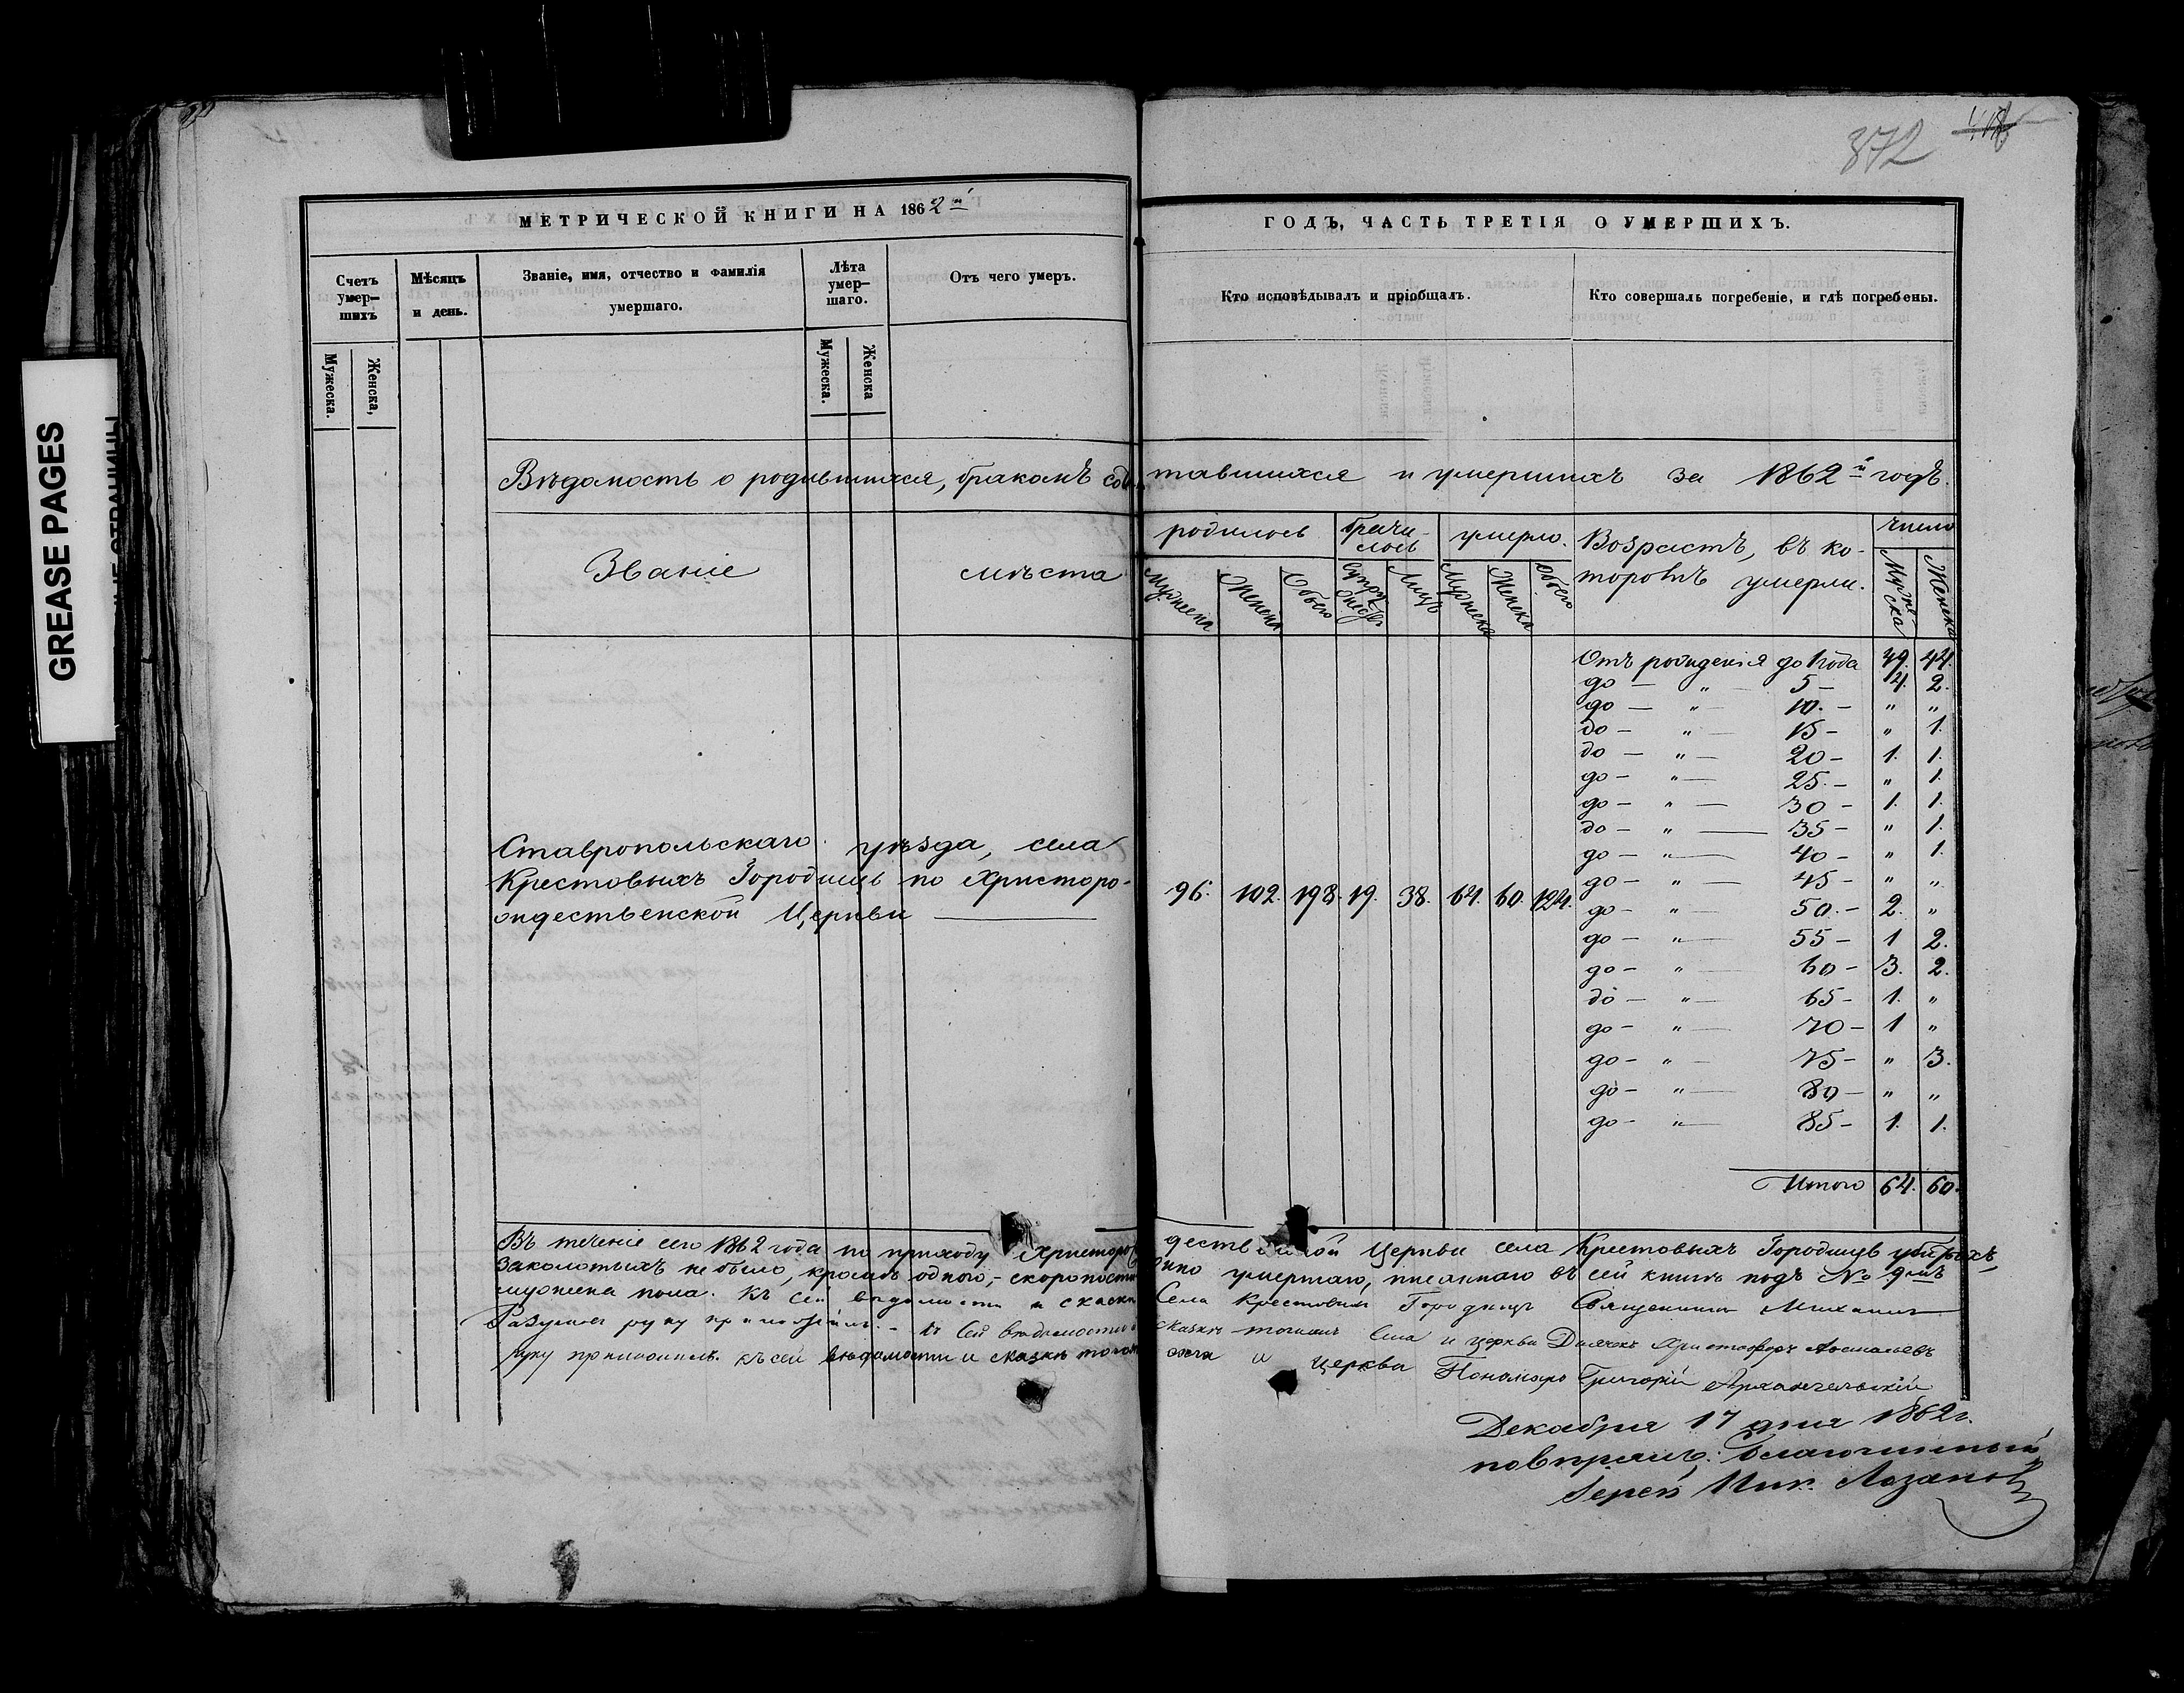 GREASE PAGES
372
МЕТРИЧЕСКОЙ КНИГИ НА 1862й
ГОДЪ, ЧАСТЬ ТРЕТІЯ О УМЕРШИХЪ.
Счетъ умер-шихъ
Мѣсяцъ и день.
Званіе, имя, отчество и фамилія умершаго.
Лѣта умер-шаго.
Отъ чего умеръ.
Кто исповѣдывалъ и пріобщалъ.
Кто совершалъ погребеніе, и гдѣ погребены.
Мужеска. Женска, Мужеска. Женска
Вѣдомость о родившихся, бракомъ соче тавшихся и умершихъ за 1862й годъ.
Званіе мѣста
родилось бречи-лось умерло. Возрастъ, въ ко-торомъ умерли. число
Мужеска Женска Обоего Супружествъ Лицъ Мужеска Женска Обоего Муже-ска Женска
Отъ рожденія до 1 года 49. 44.
до — " — 5 — 4. 2.
до — " — 10. — " "
до — " — 15 — " 1.
до — " — 20 — 1. 1.
до — " — 25. — " 1.
до — " — 30 — 1. 1.
до — " — 35 — " 1.
до — " — 40 — " 1.
до — " — 45 — " "
до — " — 50. — 2. "
до — " — 55 — 1 2.
до — " — 60 — 3. 2.
до — " — 65 — 1. "
до — " — 70 — 1 "
до — " — 75 — " 3.
до — " — 80 — " "
до — " — 85 — 1. 1.
Итого 64. 60.
Ставропольскаго уѣзда, села
Крестовыхъ Городищь по Христоро-
ждественской Церкви
96. 102. 198. 19. 38. 64. 60. 124.
Въ теченіе сего 1862 года по приходу Христорождественской Церкви села Крестовыхъ Городищъ убитыхъ,
заколотыхъ не было, кромѣ одного,- скоропостижно умершаго, писаннаго въ сей книгѣ подъ № 9мъ
мужеска пола. Къ сей вѣдомости и сказкѣ Села Крестовыхъ Городищъ Священникъ Михаилъ
Разумовъ руку приложилъ. - Къ Сей вѣдомости и сказкѣ тогожъ Села и церкви Дьячекъ Христофоръ
руку приложилъ. Къ сей вѣдомости и сказкѣ тогожъ села и церкви Пономарь Григорій Архангельскій
Декабря 17 дня 1862 г.
повѣрялъ: Благочинный
Іерей Ник. Лазановъ